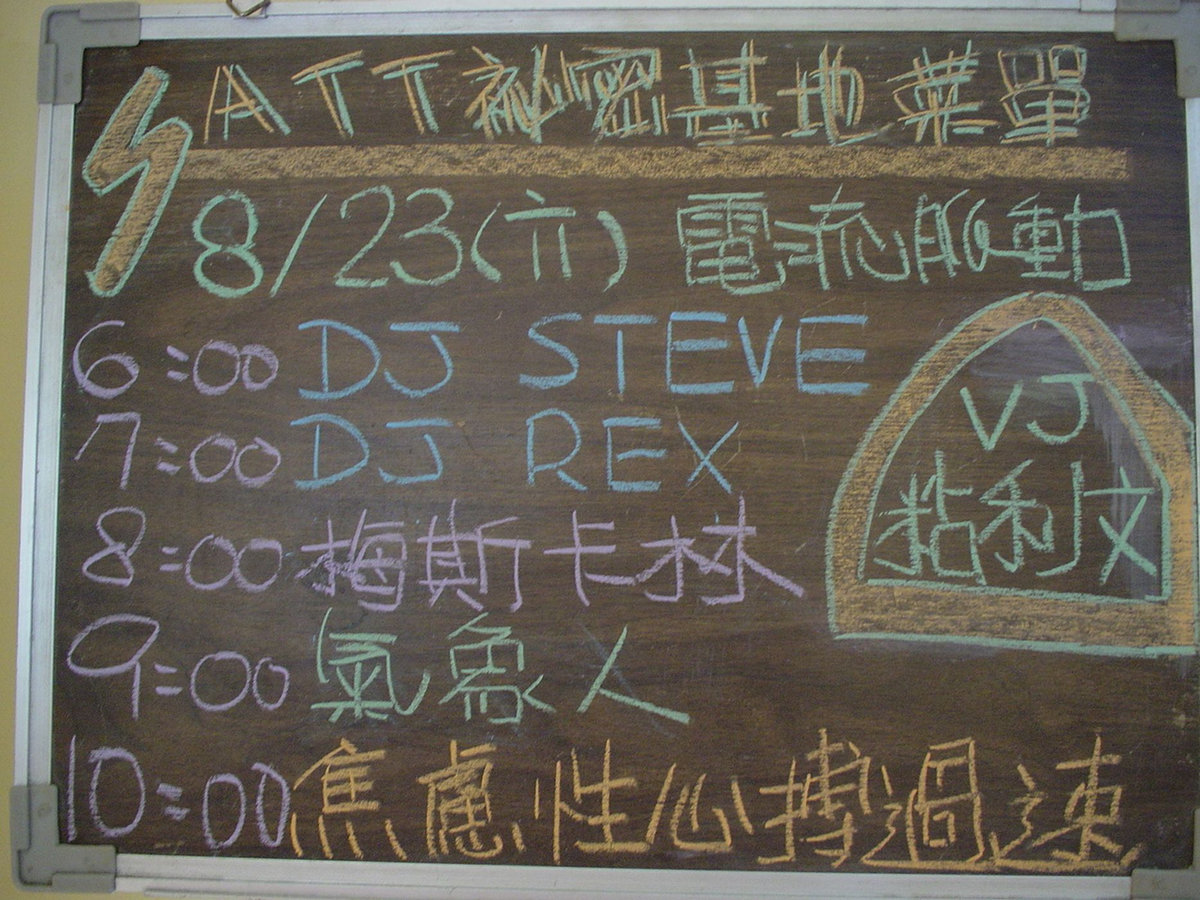 ATT祕密基地菜單
8/23(六) 電流脈動
6:00 DJ STEVE
7:00 DJ REX
8:00 梅斯卡林
9:00 氣象人
10:00 焦慮性心搏過速
VJ
粘利文